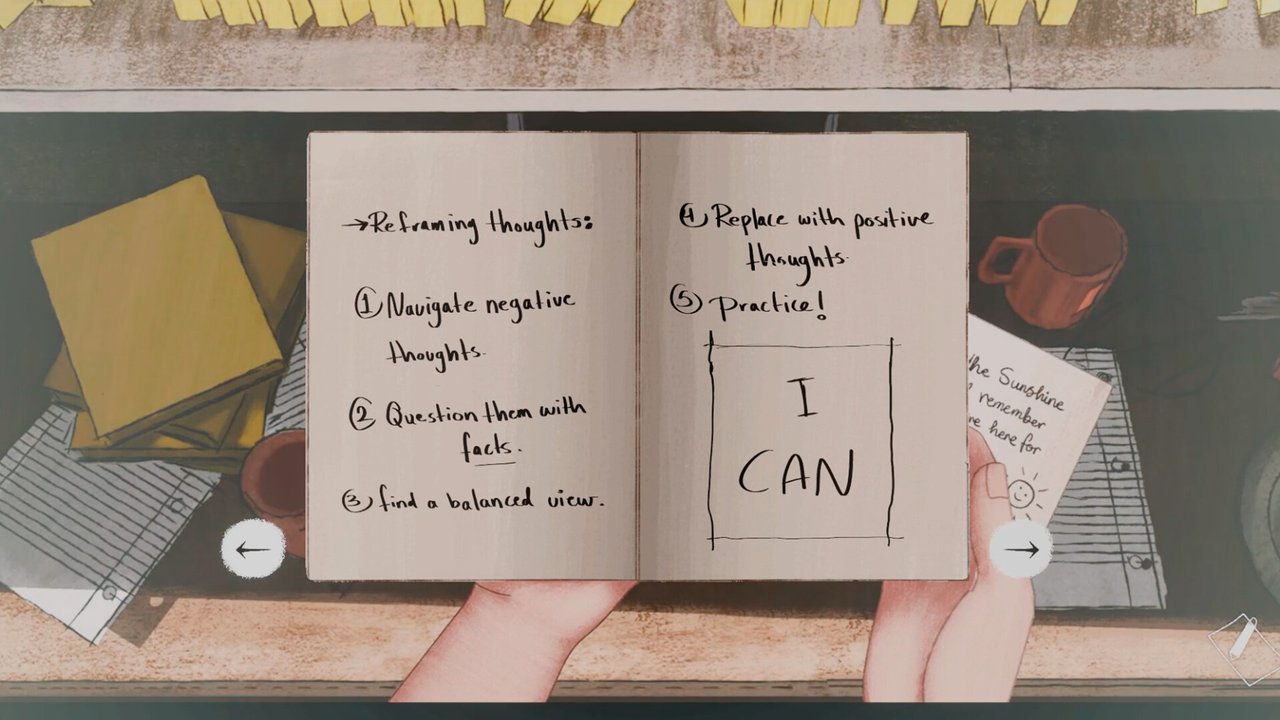 →Reframing thoughts:
① Navigate negative
thoughts.
② Question them with
facts.
③ find a balanced view.
④ Replace with positive
thoughts.
⑤ Practice!
I
CAN
the Sunshine
remember
here for